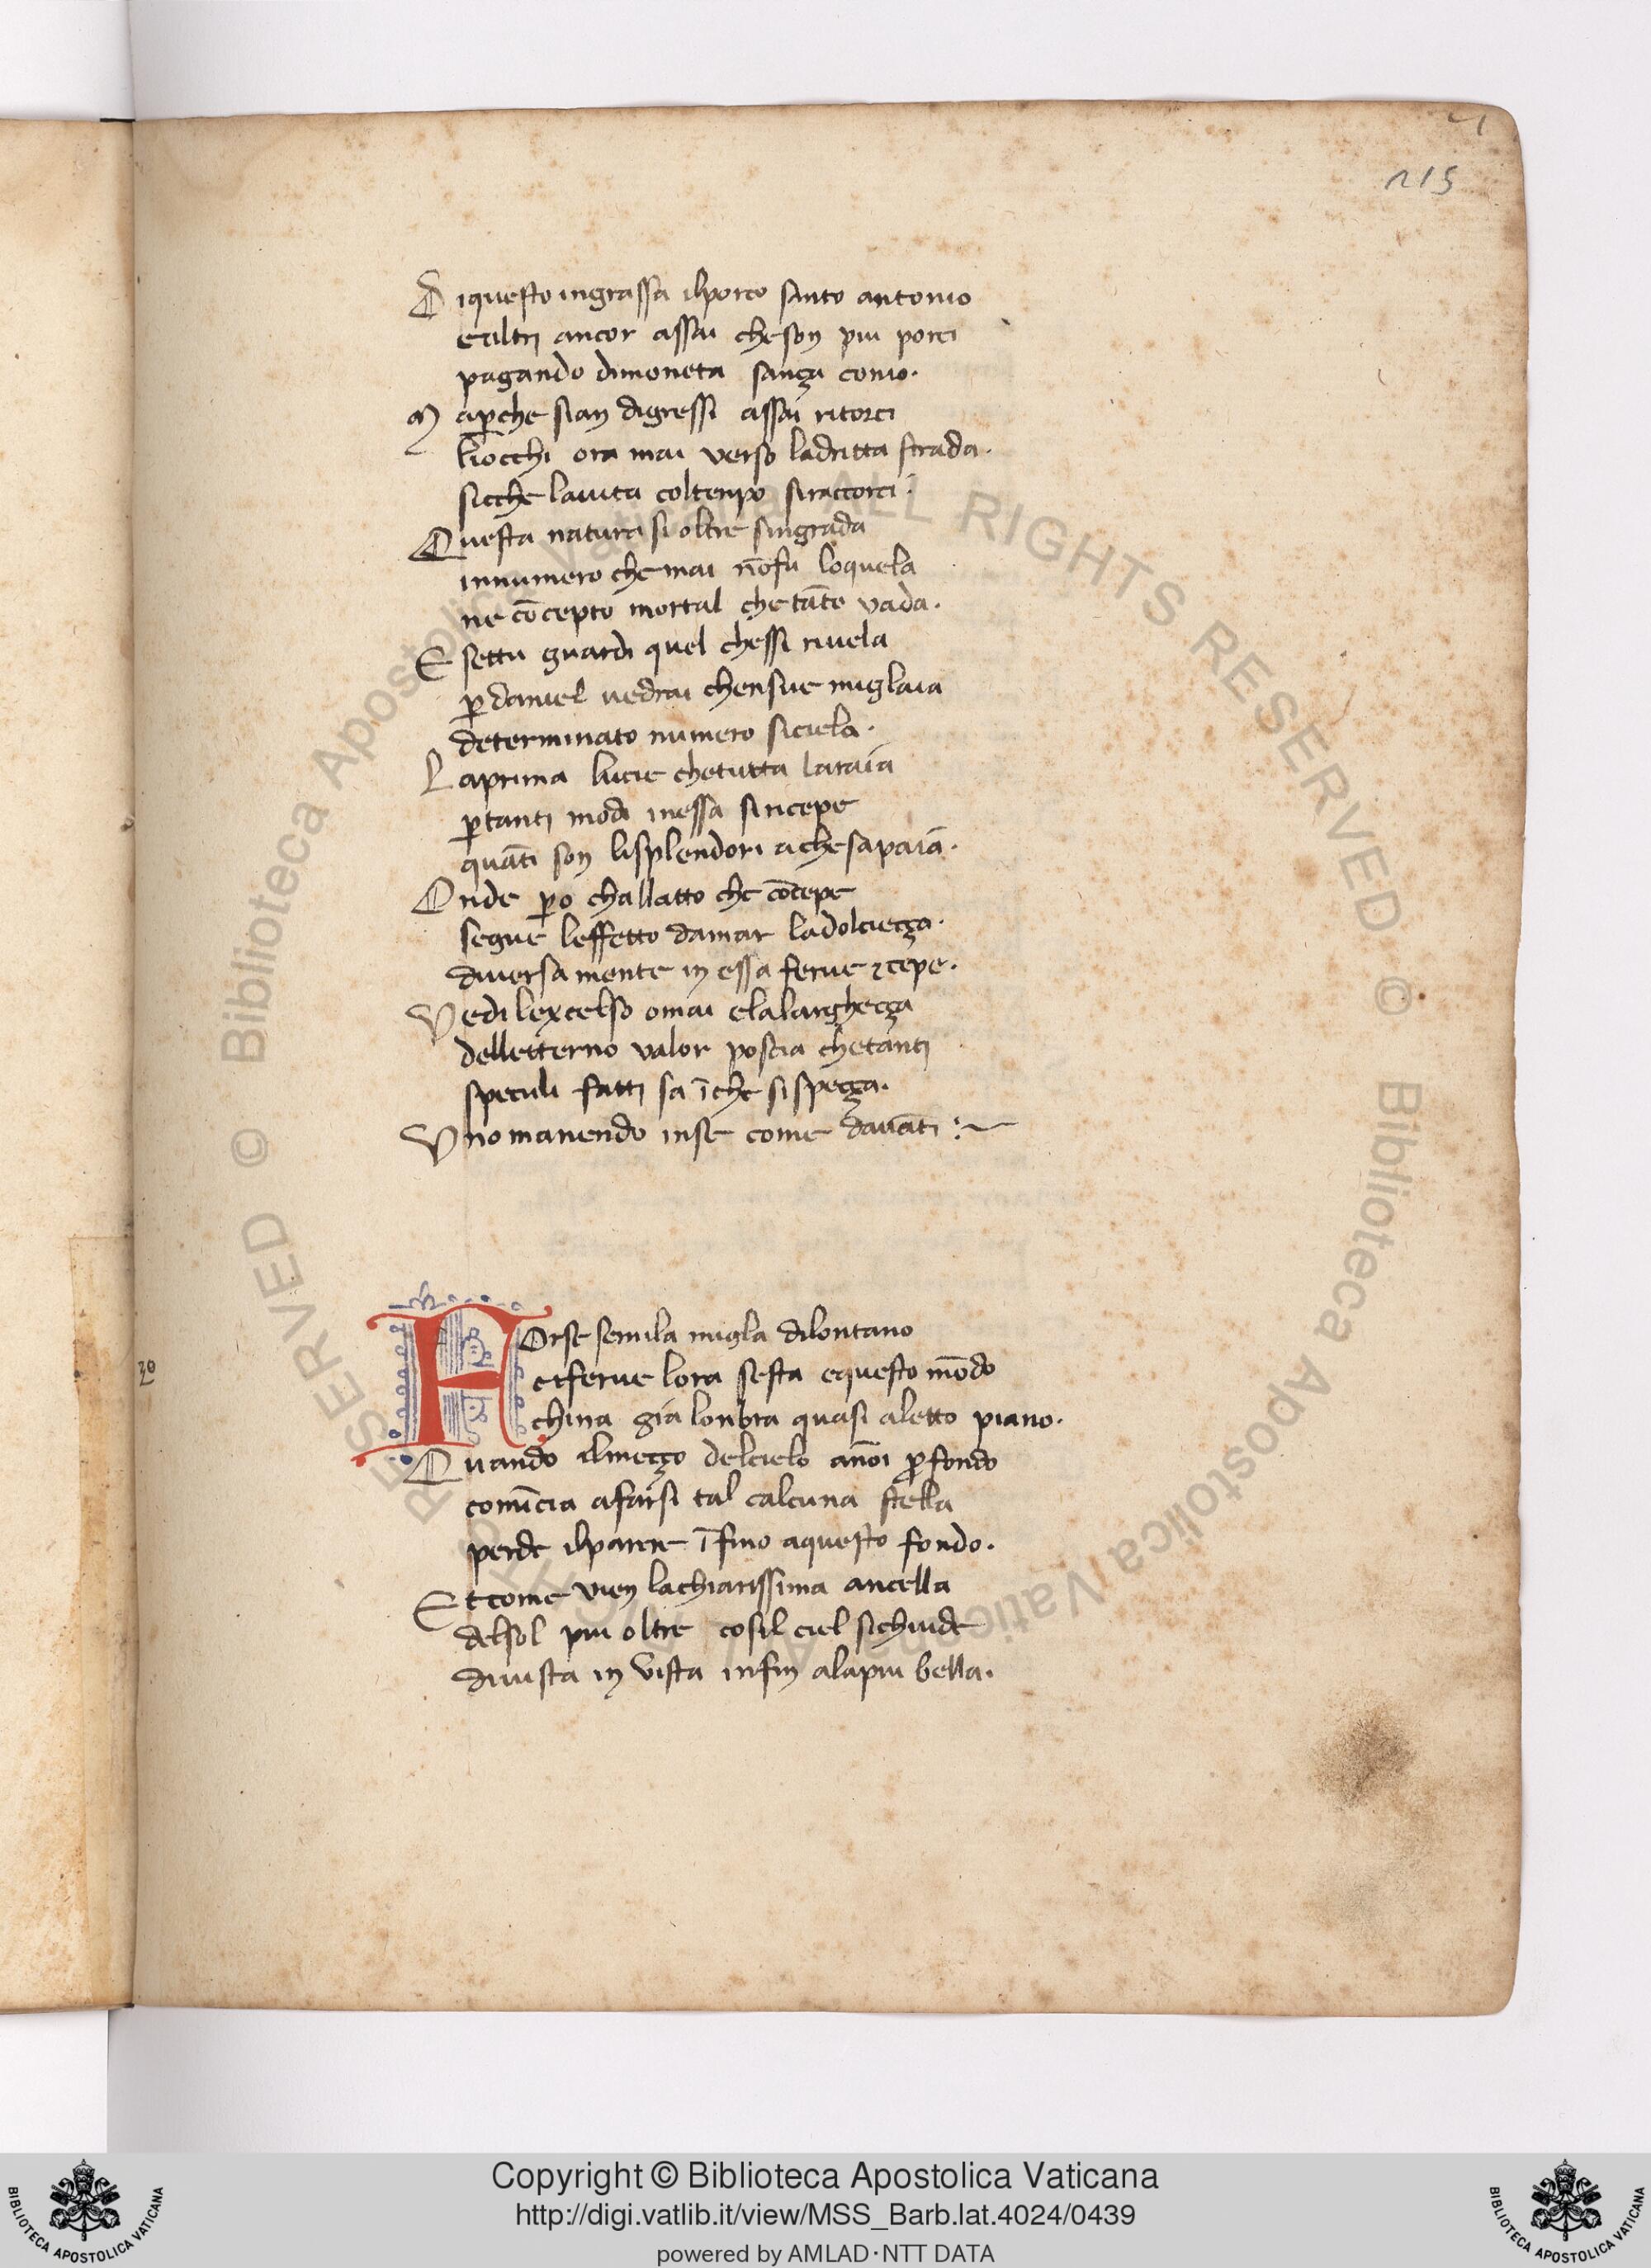 215
Diquesto ingrassa ilporco santo antonio
ealtri ancor assai cheson piu porci
pagando dimoneta sança conio.
M ap̄che sian digressi assai ritorci
liocchi ora mai verso ladritta strada.
sicche lauita coltenpo siraccorci.
Questa natura si oltre singrada
innumero che mai nōfu loquela
ne cōcepto mortal che tāto vada.
E settu guardi quel chessi riuela
p̄ daniel uedrai chensue miglaia
determinato numero siciela.
Laprima lucie chetutta laraia
p̄tanti modi inessa siricepe
quāti son lisplendori achesapaia.
Onde p̄o challatto che cōcepe
segue leffetto damar ladolcieçça.
diuersa mente in essa ferue ⁊cepe.
Vedi lexcelso omai elalargheçça
delletterno valor poscia chetanti
speculi fatti sa īche sispeçça.
Vno manendo inse come dauāti :~
FOrse semila migla dilontano
ciferue lora sesta equesto mōdo
china gia lonbra quasi aletto piano.
Quando ilmeçço delcielo anoi p̄fondo
comīcia afarsi tal calcuna stella
perde ilparere īfino aquesto fondo.
Et come vien lachiarissima ancella
delsol piu oltre cosil ciel sichiude
diuista in vista infin alapiu bella.
Copyright © Biblioteca Apostolica Vaticana
http://digi.vatlib.it/view/MSS_Barb.lat.4024/0439
powered by AMLAD·NTT DATA
BIBLIOTECA APOSTOLICA VATICANA
BIBLIOTECA APOSTOLICA VATICANA
© Biblioteca Apostolica Vaticana ALL RIGHTS RESERVED © Biblioteca Apostolica Vaticana ALL RIGHTS RESERVED